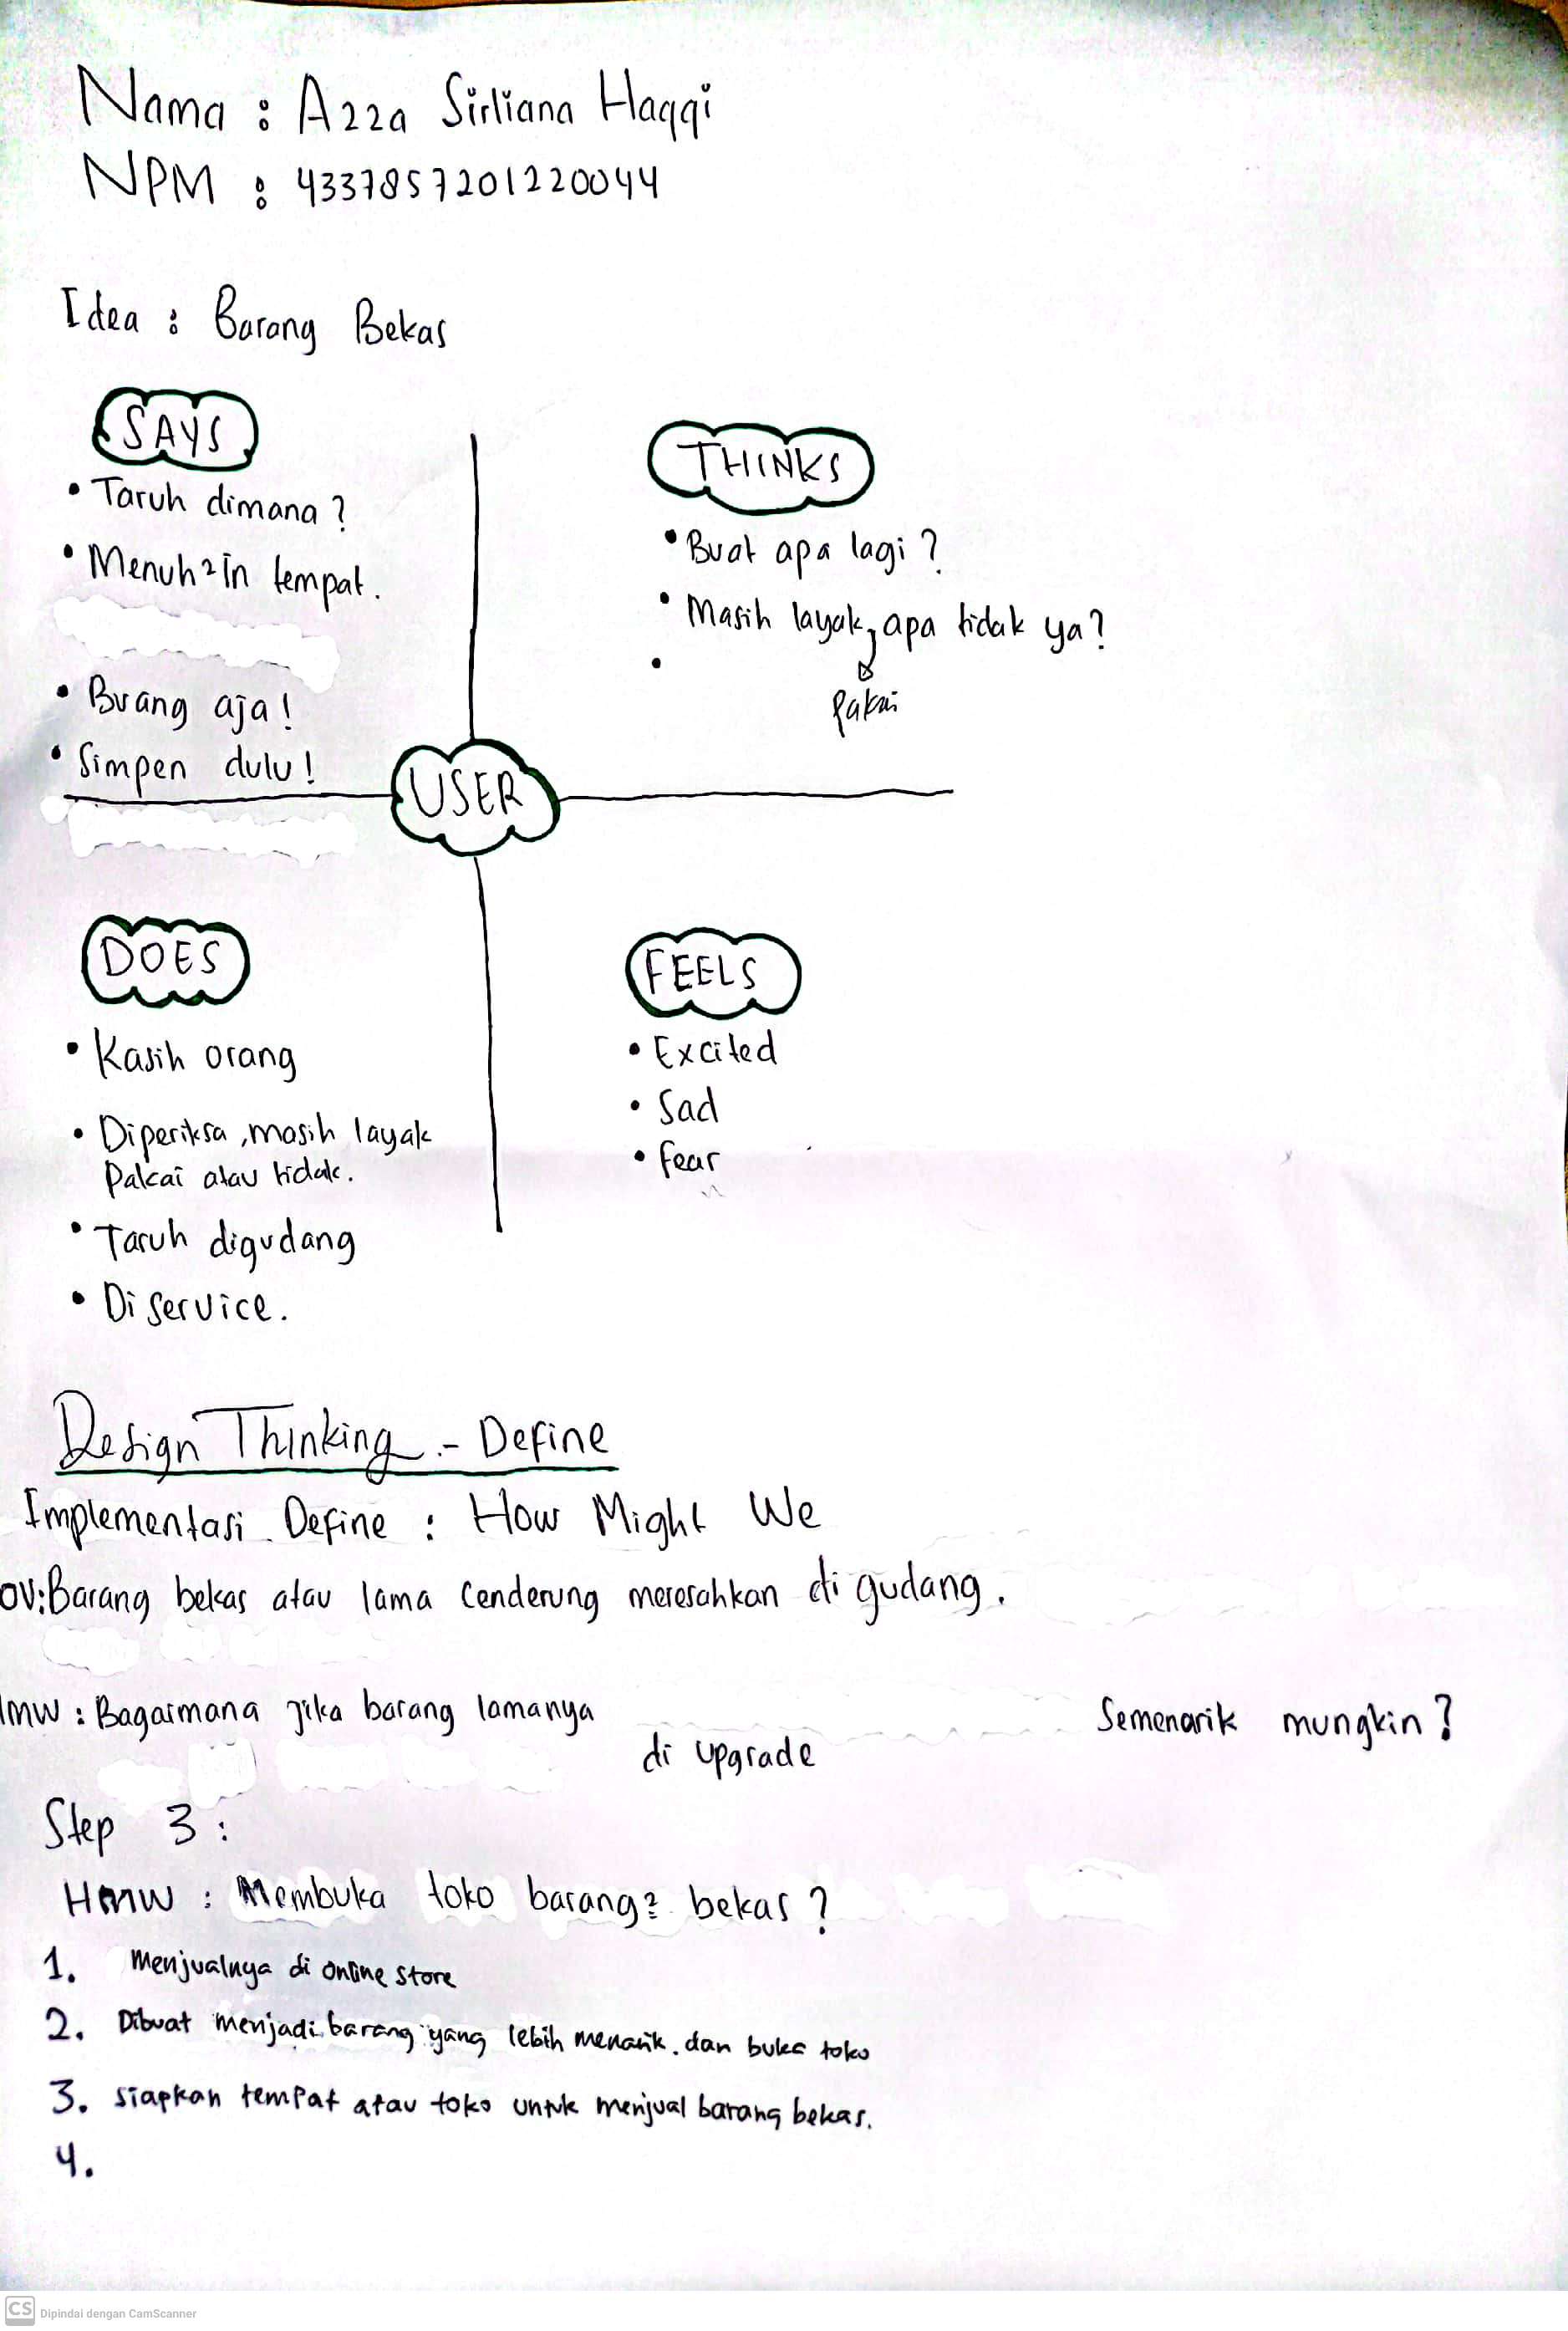 Nama : Azza Sirliana Haqqi
NPM : 4337857201220044
Idea : Barang Bekas
SAYS
• Taruh dimana ?
• Menuh²in tempat.
• Buang aja !
• Simpen dulu !
THINKS
• Buat apa lagi ?
• Masih layak, apa tidak ya ?
Pakai
•
USER
DOES
• Kasih orang
• Diperiksa, masih layak
Pakai atau tidak.
• Taruh digudang
• Di service.
FEELS
• Excited
• Sad
• fear
Design Thinking - Define
Implementasi Define : How Might We
OV: Barang bekas atau lama Cenderung meresahkan di gudang.
MW : Bagaimana jika barang lamanya di upgrade Semenarik mungkin ?
Step 3 :
HMW : Membuka toko barang² bekas ?
1. Menjualnya di online store
2. Dibuat menjadi barang yang lebih menarik. dan buka toko
3. siapkan tempat atau toko untuk menjual barang bekas.
4.
CS Dipindai dengan CamScanner